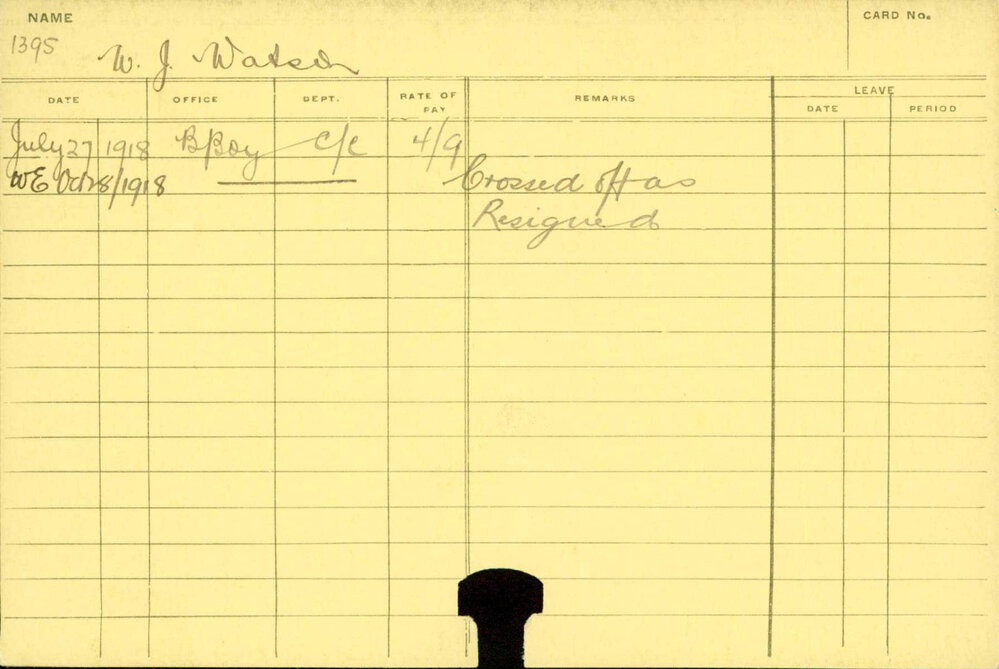 NAME
CARD No.
1395
W. J. Watson
DATE OFFICE DEPT. RATE OF PAY REMARKS LEAVE
DATE PERIOD
July 27 1918 B/Boy C/C 4/9
WE Oct 28/1918 Crossed off as
Resigned